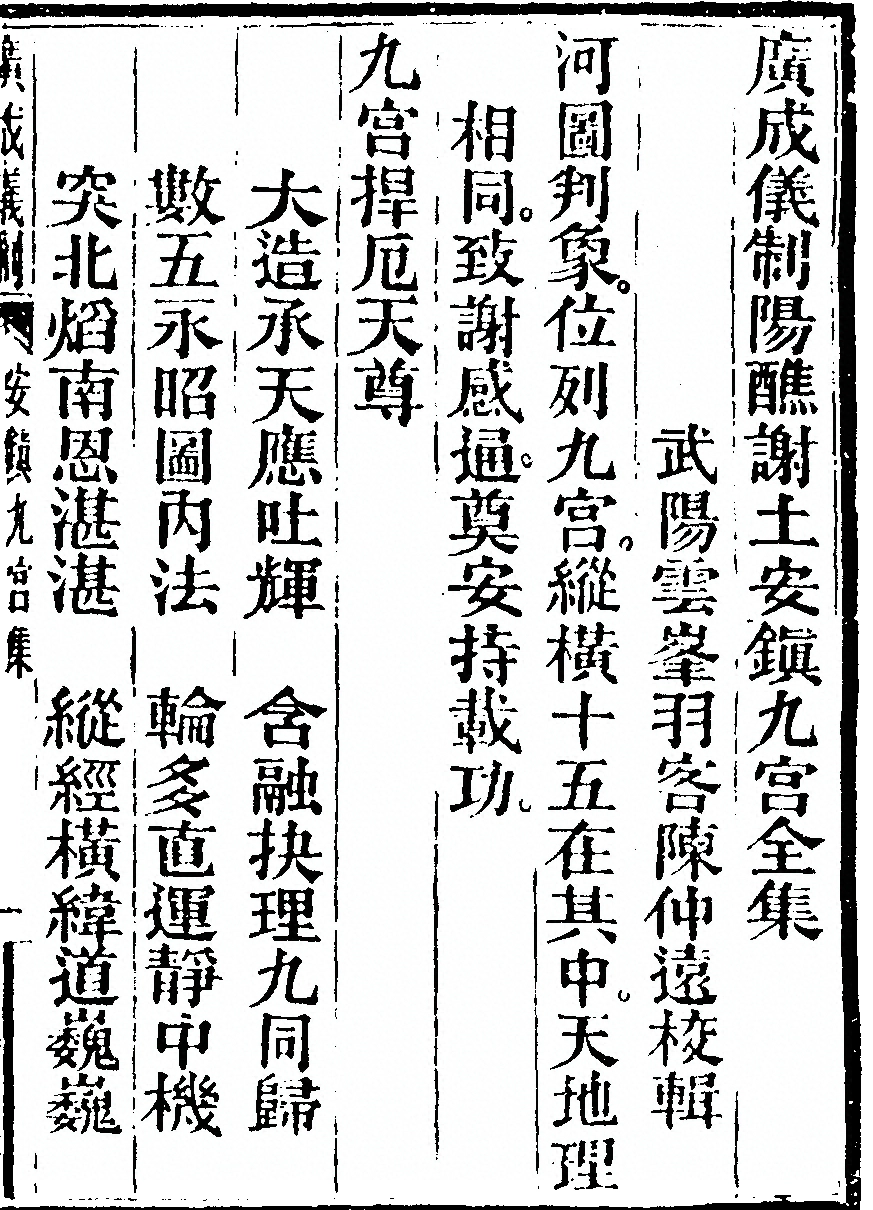 廣成儀制陽醮謝土安鎮九宮全集
武陽雲峯羽客陳仲遠校輯
河圖判象。位列九宮。縱橫十五在其中。天地理
相同。致謝感通。奠安持載功。
九宮捍厄天尊
大造承天應吐輝　含融抉理九同歸
數五永昭圖內法　輪多直運靜中機
突北熖南恩湛湛　縱經橫緯道巍巍
廣成儀制　安鎮九宮集　一